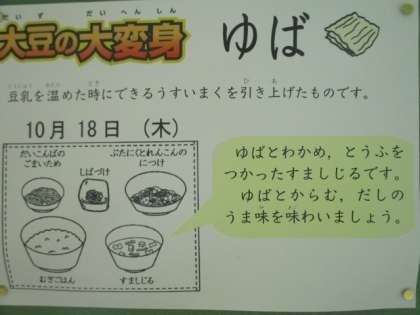 だいず だいへんしん
大豆の大変身
ゆば
豆乳を温めた時にできるうすいまくを引き上げたものです。
10月 18日 (木)
だいこんばの
ごまいため
しばづけ
ぶたにくとれんこんの
につけ
むぎごはん
すましじる
ゆばとわかめ，とうふを
つかったすましじるです。
ゆばとからむ，だしの
うま味を味わいましょう。